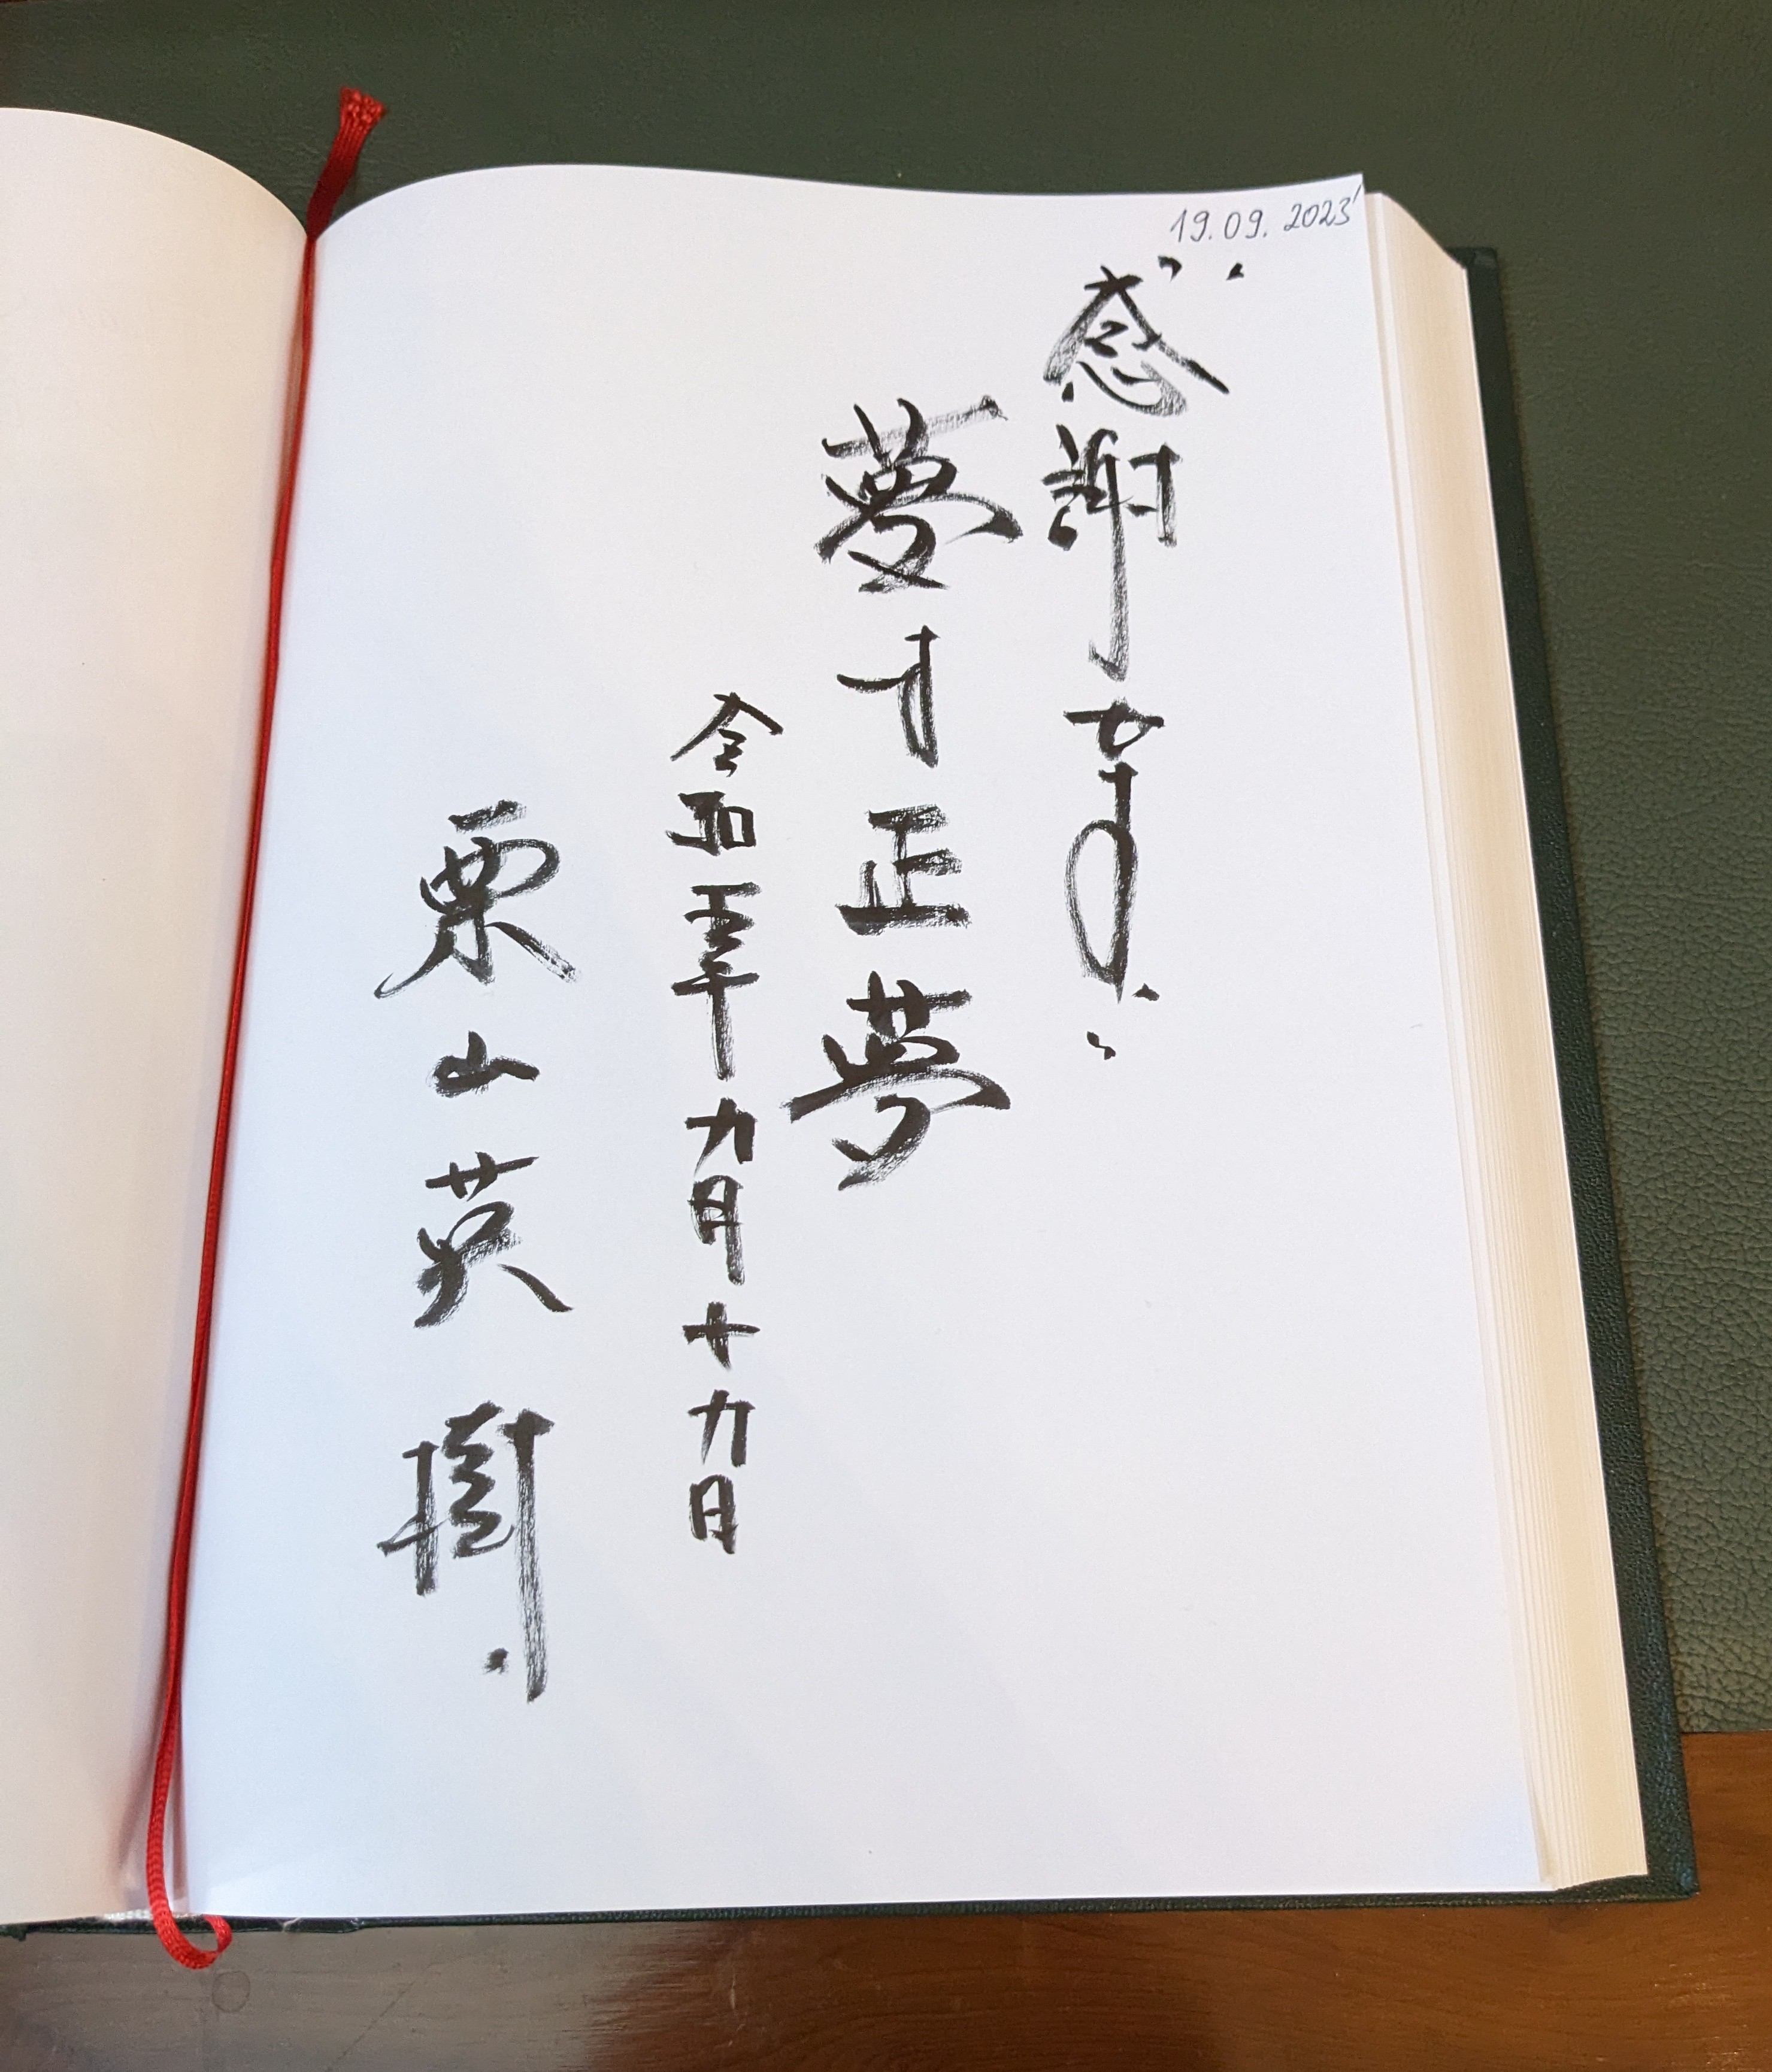 19.09.2023
感謝
夢は正夢
令和五年九月十九日
栗山英樹.